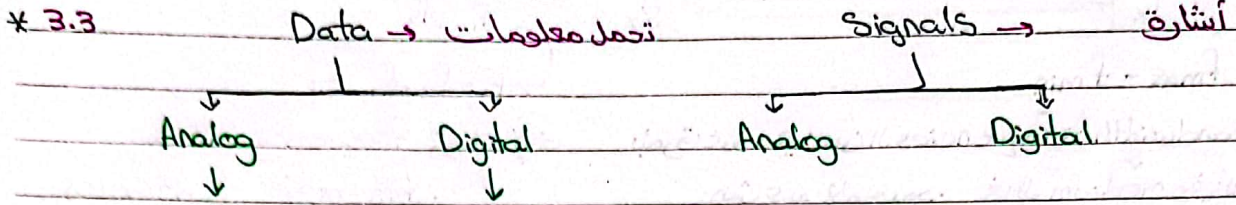 * 3.3 Data → تحمل معلومات Signals → أشارة
Analog Digital Analog Digital